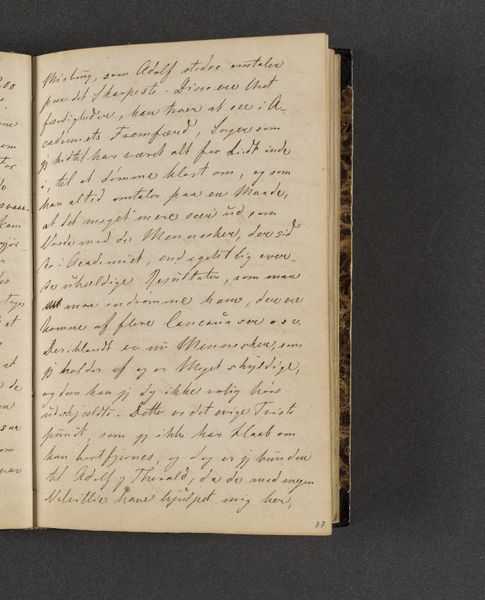 Misting, som Adolf stedse omtaler
paa det Skarpeste. Disse ere Uret-
færdigheder, han troer at see i A-
cademiets Fremfærd, Sager som
jeg hidtil har været alt for lidt inde
i, til at dømme klart om, og som
han altid omtaler paa en Maade,
at det meget mere seer ud som
Vrede mod de Mennesker, der sid-
de i Academiet, end egentlig over
de uheldige Resultater, som man
maa indrømme have, der ere
komne af flere Concurrencer o s v.
Deriblandt er nu Mennesker, som
jeg holder af og er Meget skyldige,
og dem kan jeg dog ikke rolig høre
udskjældte. Dette er det evige Tvists
punkt, som jeg ikke har Haab om
kan bortfjernes, og dog er jeg bunden
til Adolf og Thorald, da de med megen
Velvillie have hjulpet mig her,
87
200
om
de
svare
kam
tages
at
ad
de
om